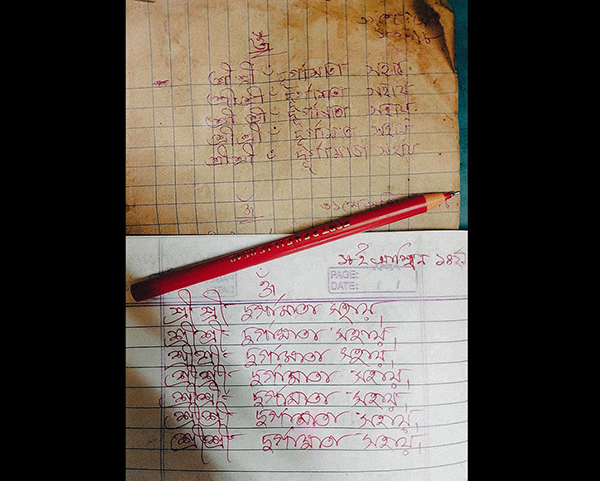 ওঁ
শ্রী শ্রীঃ দুর্গামাতা সহায়
শ্রী শ্রীঃ দুর্গামাতা সহায়
শ্রী শ্রীঃ দুর্গামাতা সহায়
শ্রী শ্রীঃ দুর্গামাতা সহায়
শ্রী শ্রীঃ দুর্গামাতা সহায়
ওঁ
PAGE:
DATE: / /
ওঁ
শ্রী শ্রীঃ দুর্গামাতা সহায়।
শ্রী শ্রীঃ দুর্গামাতা সহায়।
শ্রী শ্রীঃ দুর্গামাতা সহায়।
শ্রী শ্রীঃ দুর্গামাতা সহায়।
শ্রী শ্রীঃ দুর্গামাতা সহায়।
শ্রী শ্রীঃ দুর্গামাতা সহায়।
শ্রী শ্রীঃ দুর্গামাতা সহায়।